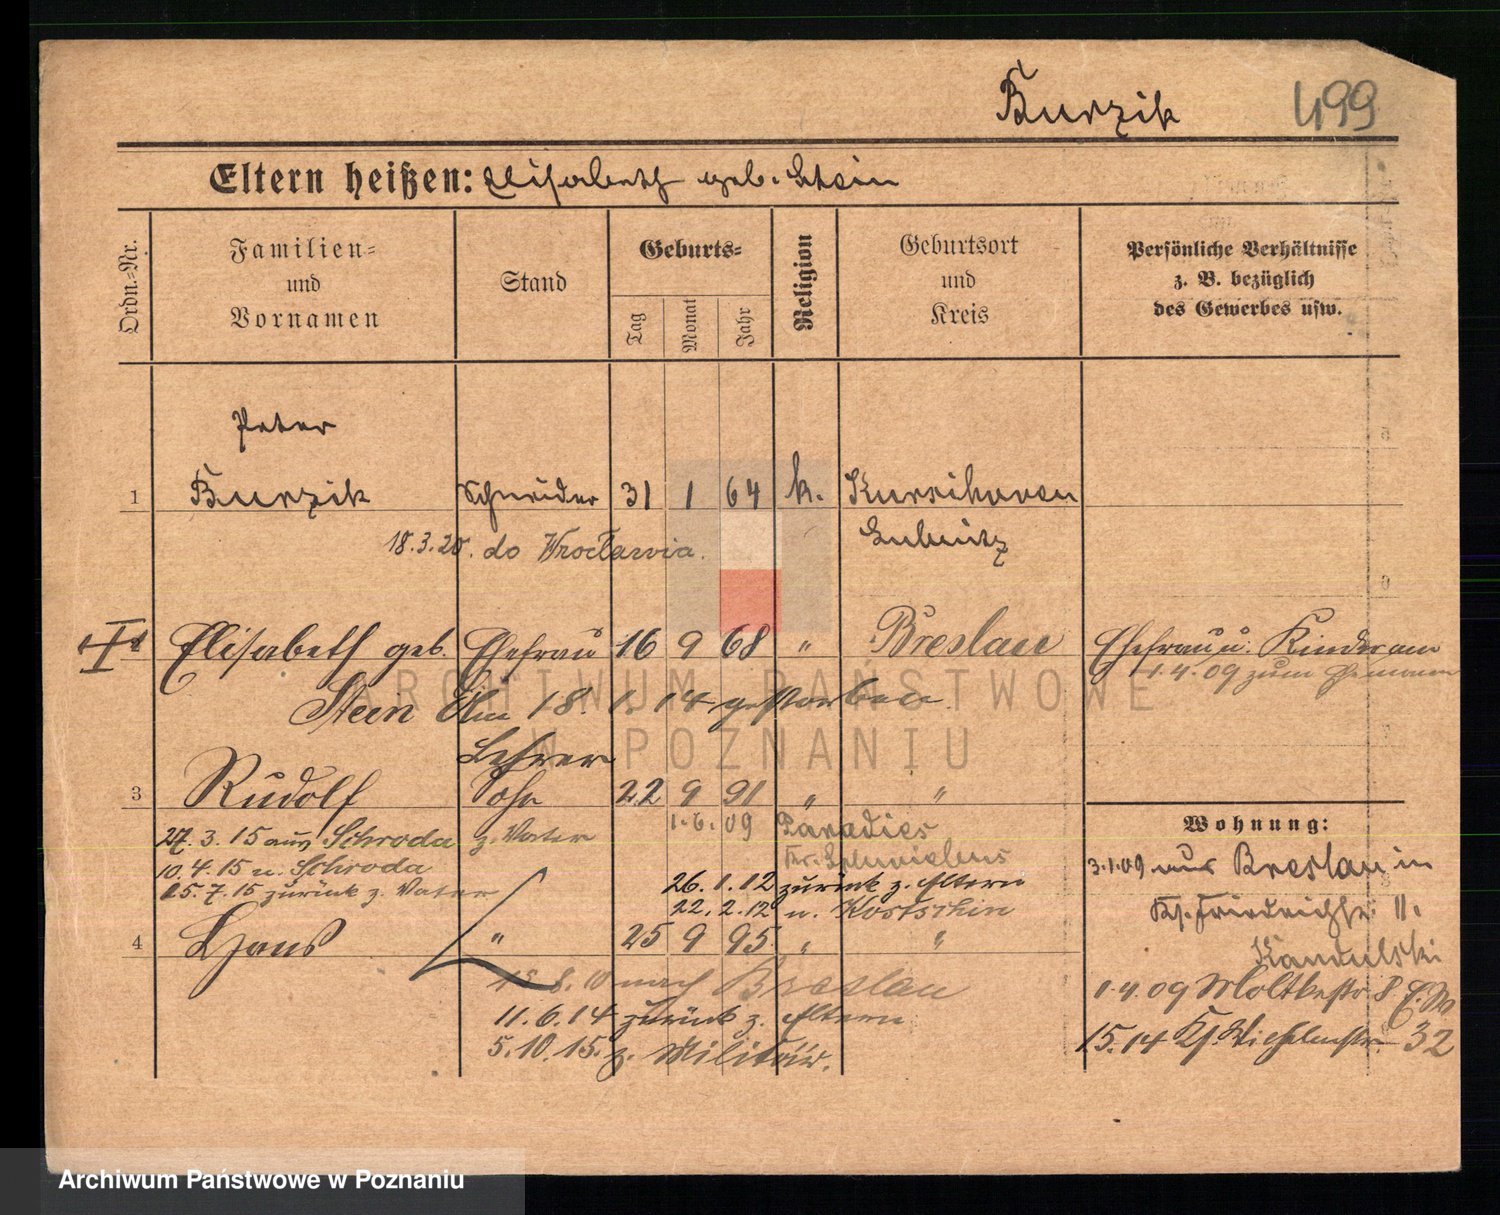 Burzik 499
Eltern heißen: Elisabeth geb. Stein
Ordn.-Nr.
Familien-
und
Vornamen
Stand
Geburts-
Tag
Monat
Jahr
Religion
Geburtsort
und
Kreis
Persönliche Verhältnisse
z. B. bezüglich
des Gewerbes usw.
Peter
1 Burzik Schneider 31 1 64 k.
Lubinitz
18.3.20. do Wrocławia.
Elisabeth geb. Ehefrau 16 9 68 " Breslau Ehefrau u. Kinder am
1.4.09 zum
Stein Am 18. 1. 14 gestorben
ARCHIWUM PAŃSTWOWE
W POZNANIU
Lehrer
3 Rudolf Sohn 22 9 91 " "
27.3.15 aus Schroda z. Vater 1.6.09 Paradies
10.4.15 n. Schroda
15.7.15 zurück z. Vater 26.1.12 zurück z. Eltern
22.2.12 n. Kostschin
4 Hans " 25 9 95 " "
8.10 nach Breslau
11.6.14 zurück z. Eltern
5.10.15. z. Militär.
Wohnung:
3.1.09 aus Breslau in
11.
Kandulski
1.4.09 Moltkestr 8
15.14 32
Archiwum Państwowe w Poznaniu